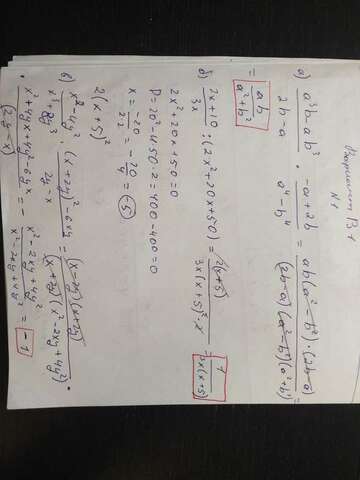 Вариант В+
N1
а) \frac{a^3b-ab^3}{2b-a} · \frac{-a+2b}{a^4-b^4} = \frac{ab(a^2-b^2)·(2b-a)}{(2b-a)(a^2-b^2)(a^2+b^2)}
= \frac{ab}{a^2+b^2}
б) \frac{2x+10}{3x} : (2x^2+20x+50) = \frac{2(x+5)}{3x(x+5)^2·2} \frac{1}{3x(x+5)}
2x^2+20x+50=0
D=20^2-4·50·2=400-400=0
x = \frac{-20}{2·2} = -\frac{20}{4} = -5
2(x+5)^2
в) \frac{x^2-4y^2}{x^3+8y^3} · \frac{(x+2y)^2-6xy}{2y-x} = \frac{(x-2y)(x+2y)}{(x+2y)(x^2-2xy+4y^2)} ·
\frac{x^2+4yx+4y^2-6yx}{(2y-x)} = - \frac{x^2-2xy+4y^2}{x^2-2xy+4y^2} = -1